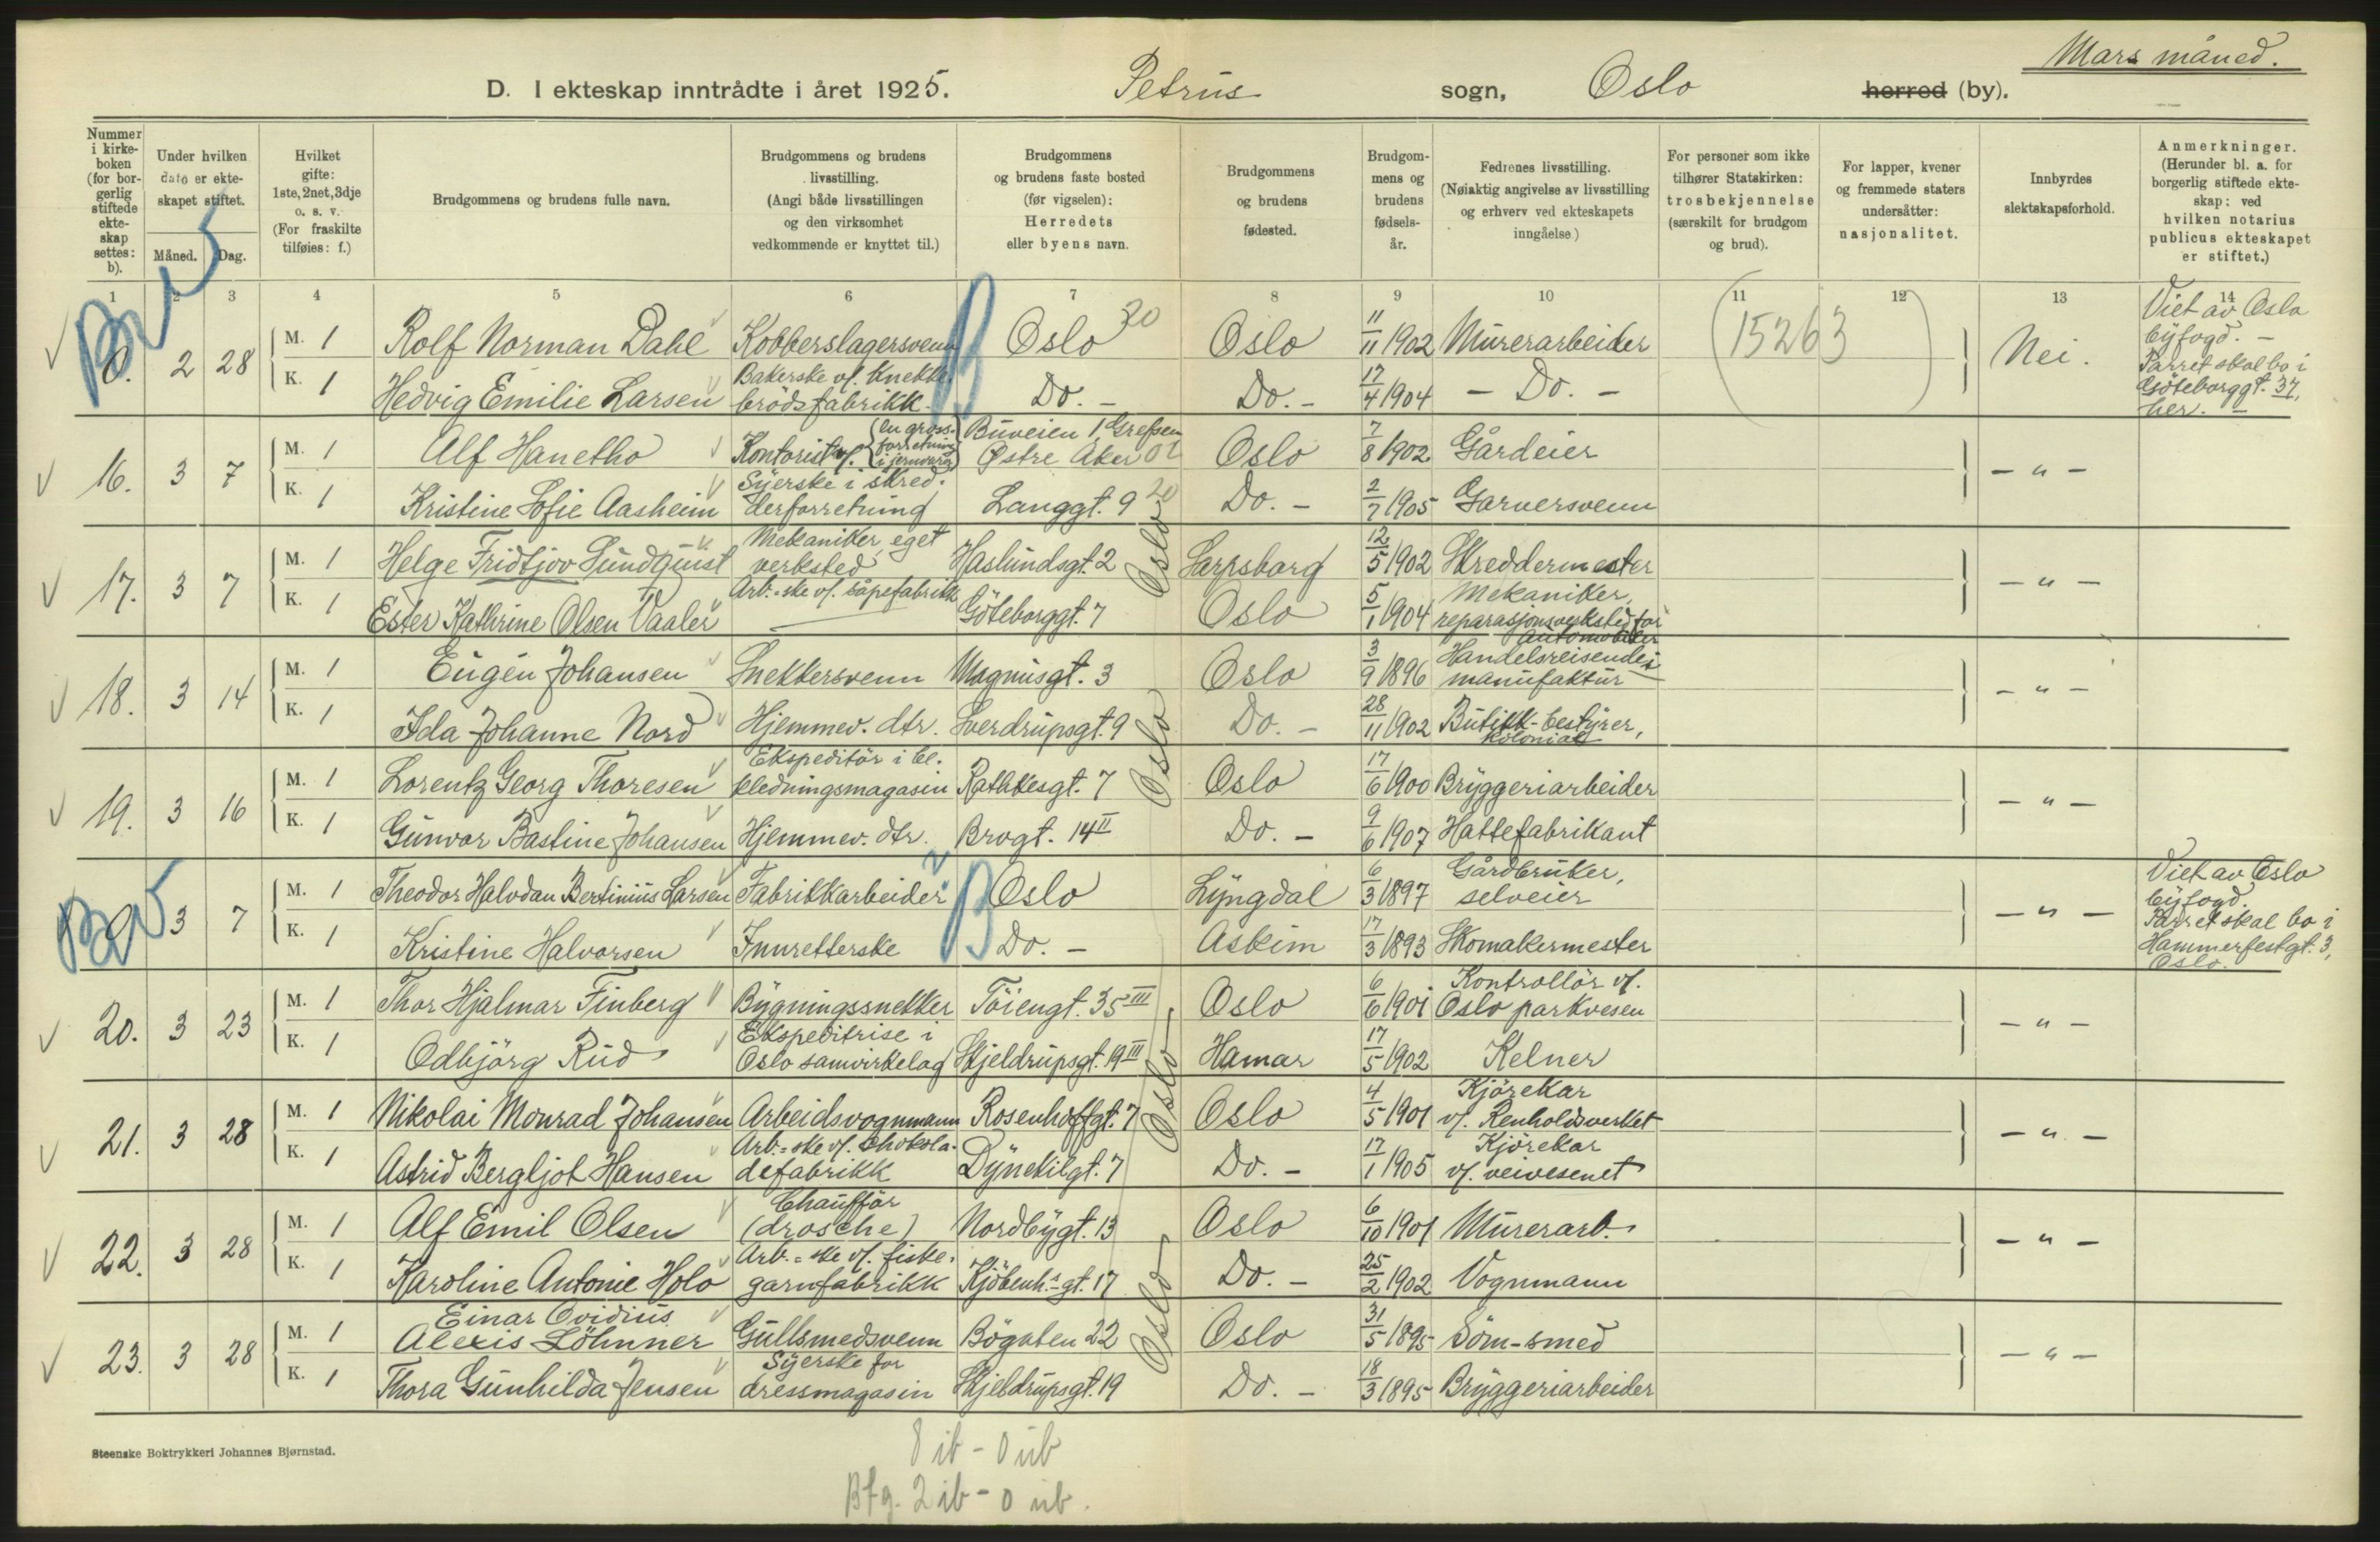 Mars måned.
D. I ekteskap inntrådte i året 1925. Petrus sogn, Oslo herred (by).
Nummer i kirke-boken (for bor-gerlig stiftede ekte-skap settes: b).
Under hvilken dato er ekte-skapet stiftet.
Måned. Dag.
Hvilket gifte: 1ste, 2net, 3dje o. s. v. (For fraskilte tilføies: f.)
Brudgommens og brudens fulle navn.
Brudgommens og brudens livsstilling. (Angi både livsstillingen og den virksomhet vedkommende er knyttet til.)
Brudgommens og brudens faste bosted (før vigselen): Herredets eller byens navn.
Brudgommens og brudens fødested.
Brudgom-mens og brudens fødsels-år.
Fedrenes livsstilling. (Nøiaktig angivelse av livsstilling og erhverv ved ekteskapets inngåelse.)
For personer som ikke tilhører Statskirken: trosbekjennelse (særskilt for brudgom og brud).
For lapper, kvener og fremmede staters undersåtter: nasjonalitet.
Innbyrdes slektskapsforhold.
Anmerkninger. (Herunder bl. a. for borgerlig stiftede ekte-skap: ved hvilken notarius publicus ekteskapet er stiftet.)
1 2 3 4 5 6 7 8 9 10 11 12 13 14
2 28 M. 1 Rolf Norman Dahl Kobberslagersvenn Oslo 20 Oslo 11/11 1902 Murerarbeider (15263) Nei. Viet av Oslo byfogd. - Parret skal bo i Göteborggt. 37, her. -
K. 1 Hedvig Emilie Larsen Bakerske v/. Knekke-brödsfabrikk. Do. - Do. - 17/4 1904 - Do. -
16. 3 7 M. 1 Alf Hanetho Kontorist v/. (en gross-forretning i jernvarer) Buveien 1, Grefsen Østre Aker 02 Oslo 7/8 1902 Gårdeier - " -
K. 1 Kristine Sofie Aasheim Syerske i skred-derforretning Langgt. 9 20 Oslo Do. - 2/7 1905 Garversvenn
17. 3 7 M. 1 Helge Fridtjov Sundquist Mekaniker, eget verksted Haslundsgt. 2 Sarpsborg 12/5 1902 Skreddermester - " -
K. 1 Ester Kathrine Olsen Vaaler Arb.-ske v/. såpefabrikk Göteborggt. 7 Oslo 5/1 1904 Mekaniker, reparasjonsverksted for automobiler
18. 3 14 M. 1 Eugén Johansen Snekkersvenn Magnusgt. 3 Oslo 3/9 1896 Handelsreisende i manufaktur - " -
K. 1 Ida Johanne Nord Hjemmev. dtr. Sverdrupsgt. 9 Oslo Do. - 28/11 1902 Butikk-bestyrer, kolonial
19. 3 16 M. 1 Lorentz Georg Thoresen Ekspeditör i be-kledningsmagasin Rathkesgt. 7 Oslo 17/6 1900 Bryggeriarbeider - " -
K. 1 Gunvor Bastine Johansen Hjemmev. dtr. Brogt. 14 II Do. - 9/6 1907 Hattefabrikant
3 7 M. 1 Theodor Halvdan Bertinius Larsen Fabrikkarbeider ? Oslo Lyngdal 6/3 1897 Gårdbruker, selveier - " - Viet av Oslo byfogd. Parret skal bo i Hammerfestgt. 3, Oslo.
K. 1 Kristine Halvorsen Innretterske Do. - Askim 17/3 1893 Skomakermester
20. 3 23 M. 1 Thor Hjalmar Finberg Bygningssnekker Töiengt. 35 III Oslo 6/6 1901 Kontrollör v/. Oslo parkvesen - " -
K. 1 Odbjörg Rud Ekspeditrise i Oslo samvirkelag Skjeldrupsgt. 19 III Oslo Hamar 17/5 1902 Kelner
21. 3 28 M. 1 Nikolai Monrad Johansen Arbeidsvognmann Rosenhoffgt. 7 Oslo 4/5 1901 Kjörekar v/. Renholdsverket - " -
K. 1 Astrid Bergljot Hansen Arb.-ske v/. Chokola-defabrikk Dynekilgt. 7 Do. - 17/1 1905 Kjörekar v/. veivesenet
22. 3 28 M. 1 Alf Emil Olsen Chaufför (drosche) Nordbygt. 13 Oslo 6/10 1901 Murerarb. - " -
K. 1 Karoline Antonie Holo Arb.-ske v/. fiske-garnfabrikk Kjöbenh.-gt. 17 Oslo Do. - 25/2 1902 Vognmann
23. 3 28 M. 1 Einar Ovidius Alexis Löhnner Gullsmedsvenn Bögaten 22 Oslo 31/5 1895 Söm-smed - " -
K. 1 Thora Gunhilda Jensen Syerske for dressmagasin Skjeldrupsgt. 19 Do. - 18/3 1895 Bryggeriarbeider
Steenske Boktrykkeri Johannes Bjørnstad.
8 ib - 0 ub
Bfg. 2 ib - 0 ub.